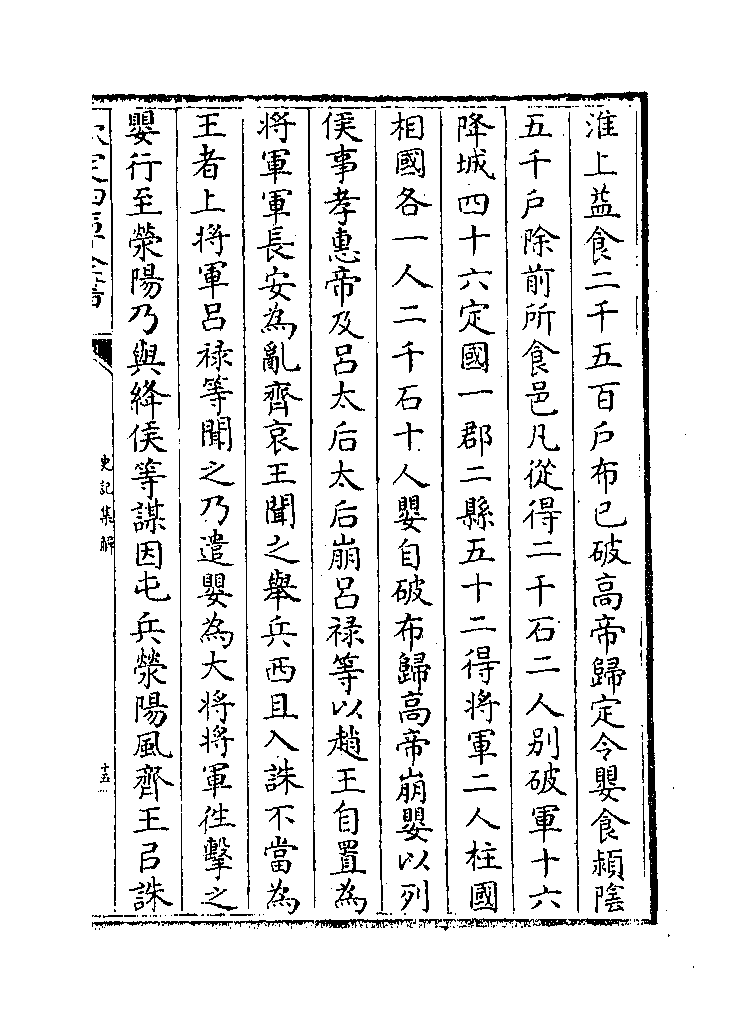 淮上益食二千五百戶布已破高帝歸定令嬰食潁隂
五千戶除前所食邑凡從得二千石二人别破軍十六
降城四十六定國一郡二縣五十二得將軍二人柱國
相國各一人二千石十人嬰自破布歸高帝崩嬰以列
侯事孝惠帝及呂太后太后崩呂禄等以趙王自置為
將軍軍長安為亂齊哀王聞之舉兵西且入誅不當為
王者上將軍呂禄等聞之乃遣嬰為大將將軍徃擊之
嬰行至滎陽乃與絳侯等謀因屯兵滎陽風齊王㠯誅
欽定四庫全書
史記集解
十五